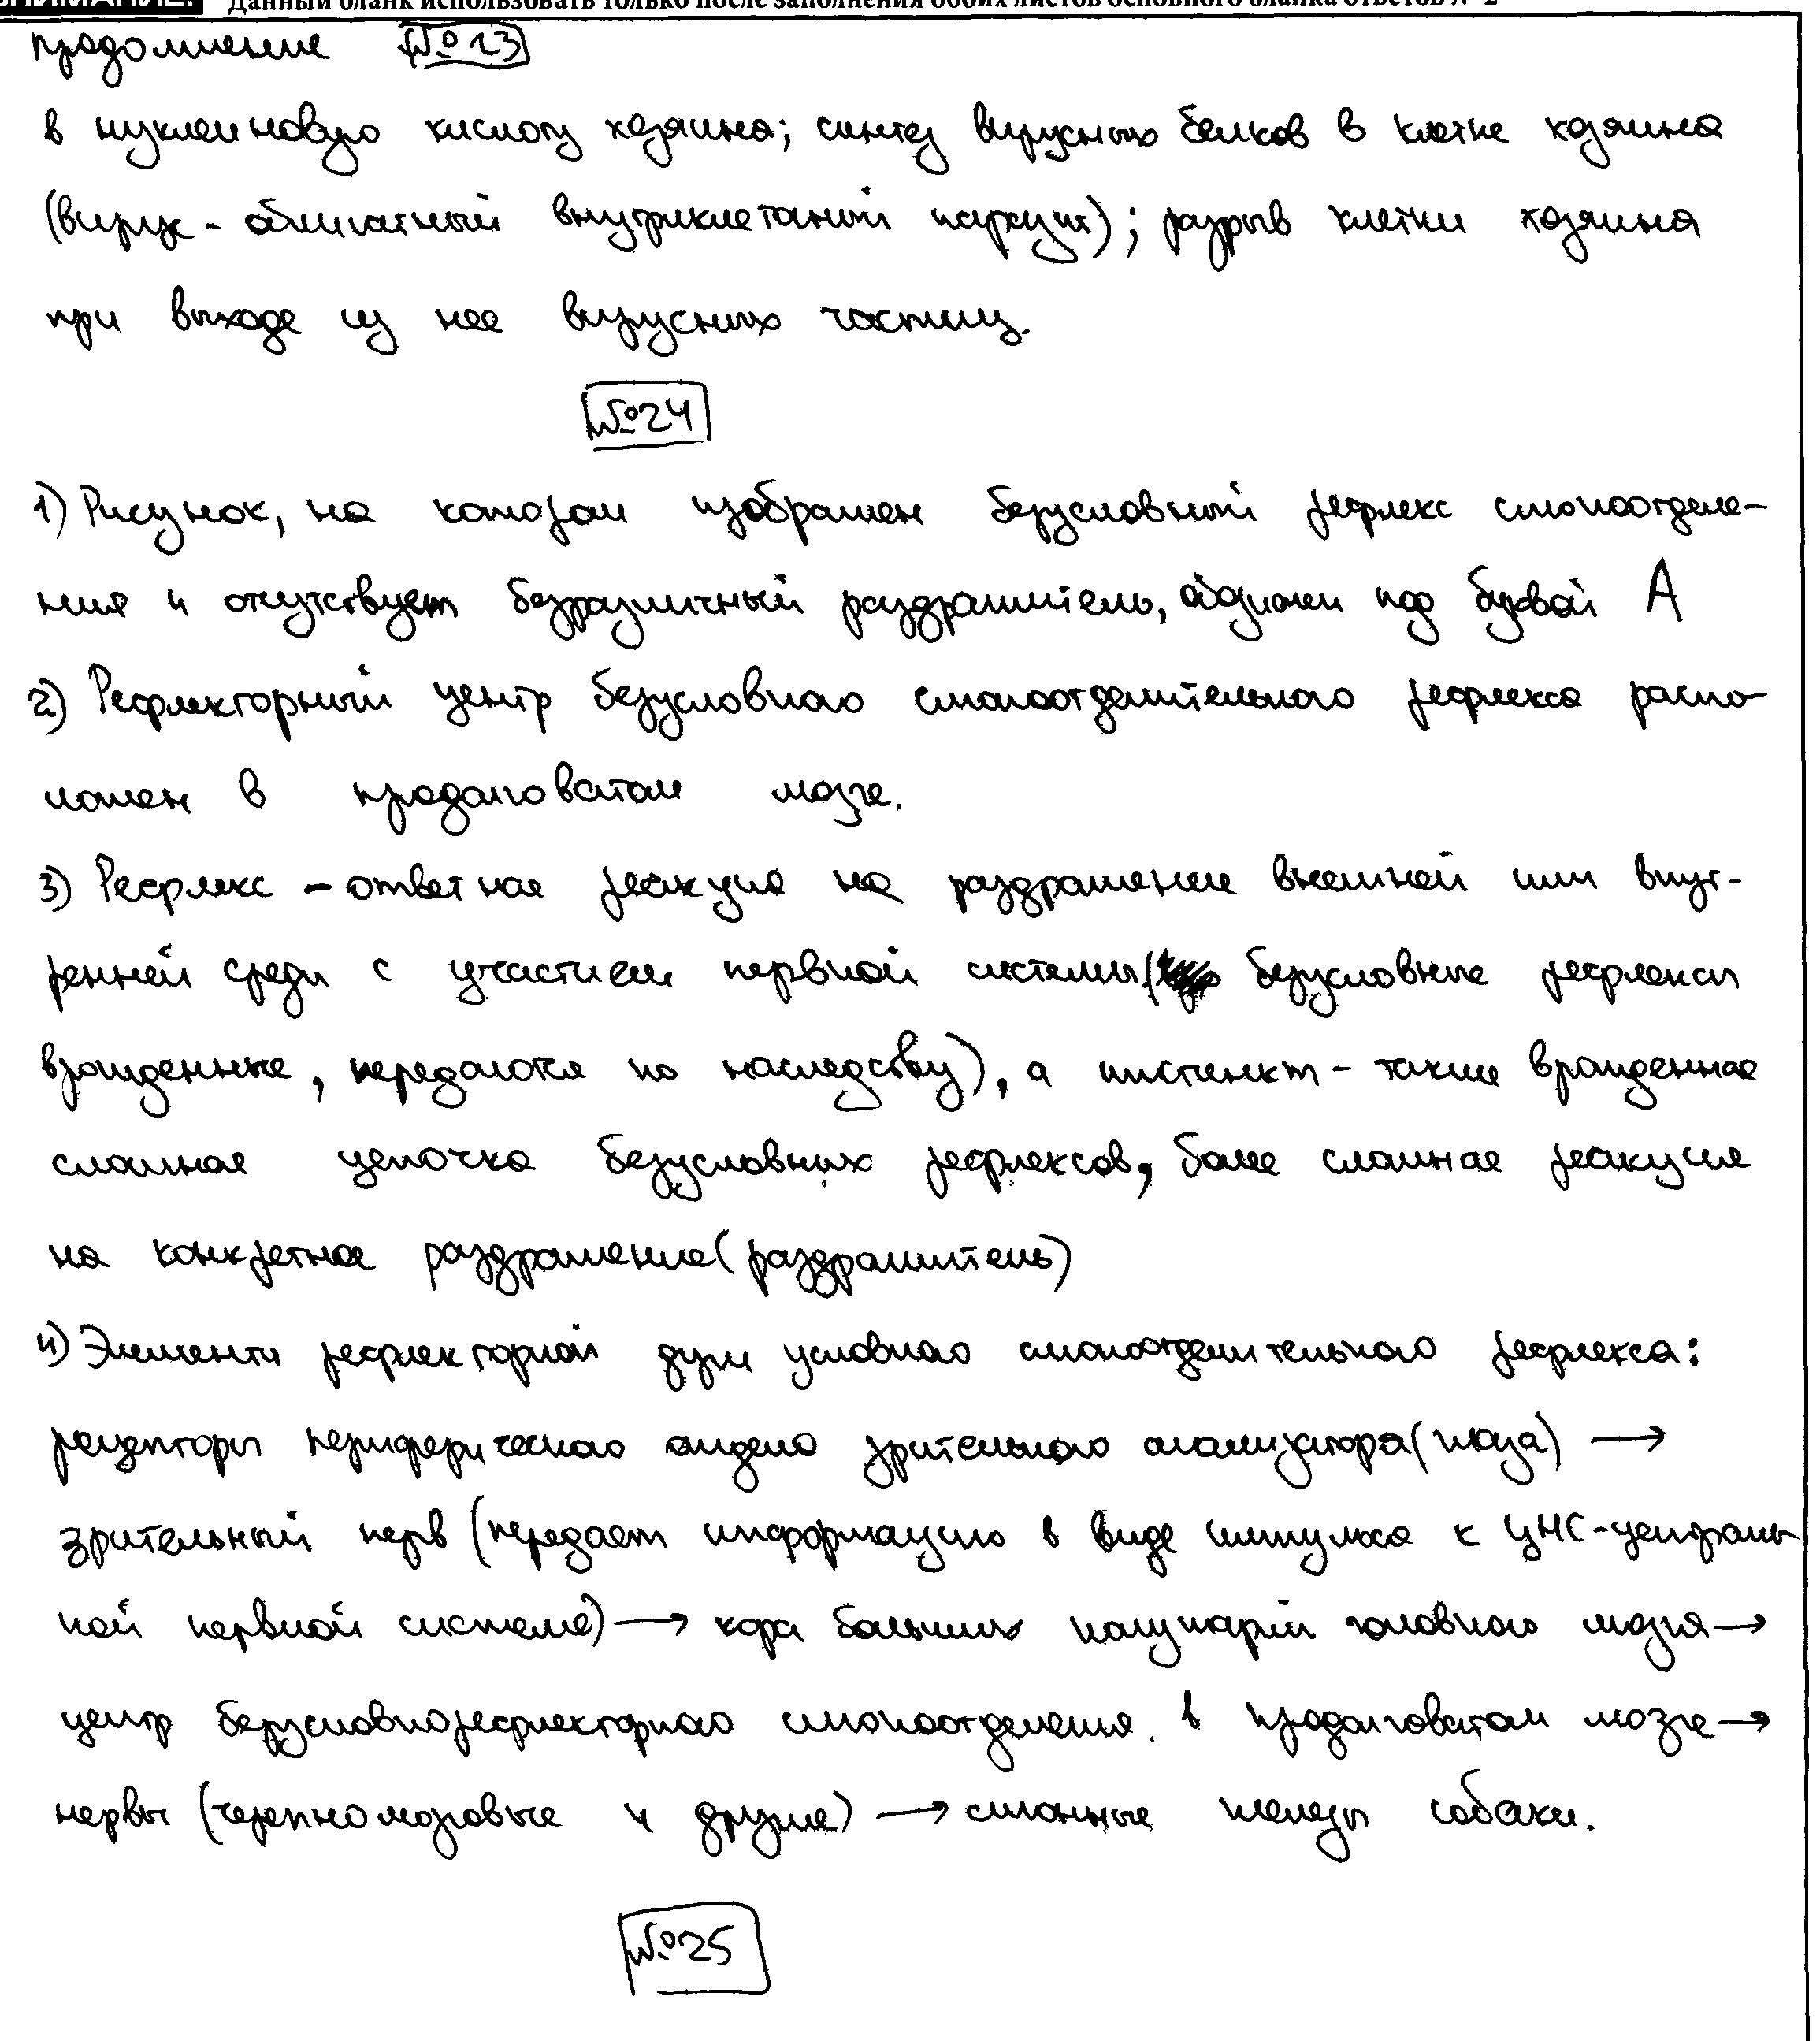 ВНИМАНИЕ! Данный бланк использовать только после заполнения обоих листов основного бланка ответов № 2
продолжение №23
в нуклеиновую кислоту хозяина; синтез вирусных белков в клетке хозяина
(вирус - облигатный внутриклеточный паразит); разрыв клетки хозяина
при выходе из нее вирусных частиц.
№24
1) Рисунок, на котором изображен безусловный рефлекс слюноотделе-
ния и отсутствует безразличный раздражитель, обозначен под буквой А
2) Рефлекторный центр безусловного слюноотделительного рефлекса распо-
ложен в продолговатом мозге.
3) Рефлекс - ответная реакция на раздражение внешней или внут-
ренней среды с участием нервной системы (безусловные рефлексы
врожденные, передаются по наследству), а инстинкт - также врожденная
сложная цепочка безусловных рефлексов, более сложная реакция
на конкретное раздражение (раздражитель)
4) Элементы рефлекторной дуги условного слюноотделительного рефлекса:
рецепторы периферического отдела зрительного анализатора (глаза) →
зрительный нерв (передает информацию в виде импульса к ЦНС-централь
ной нервной системе) → кора больших полушарий головного мозга →
центр безусловнорефлекторного слюноотделения в продолговатом мозге →
нервы (черепномозговые и другие) → слюнные железы собаки.
№25